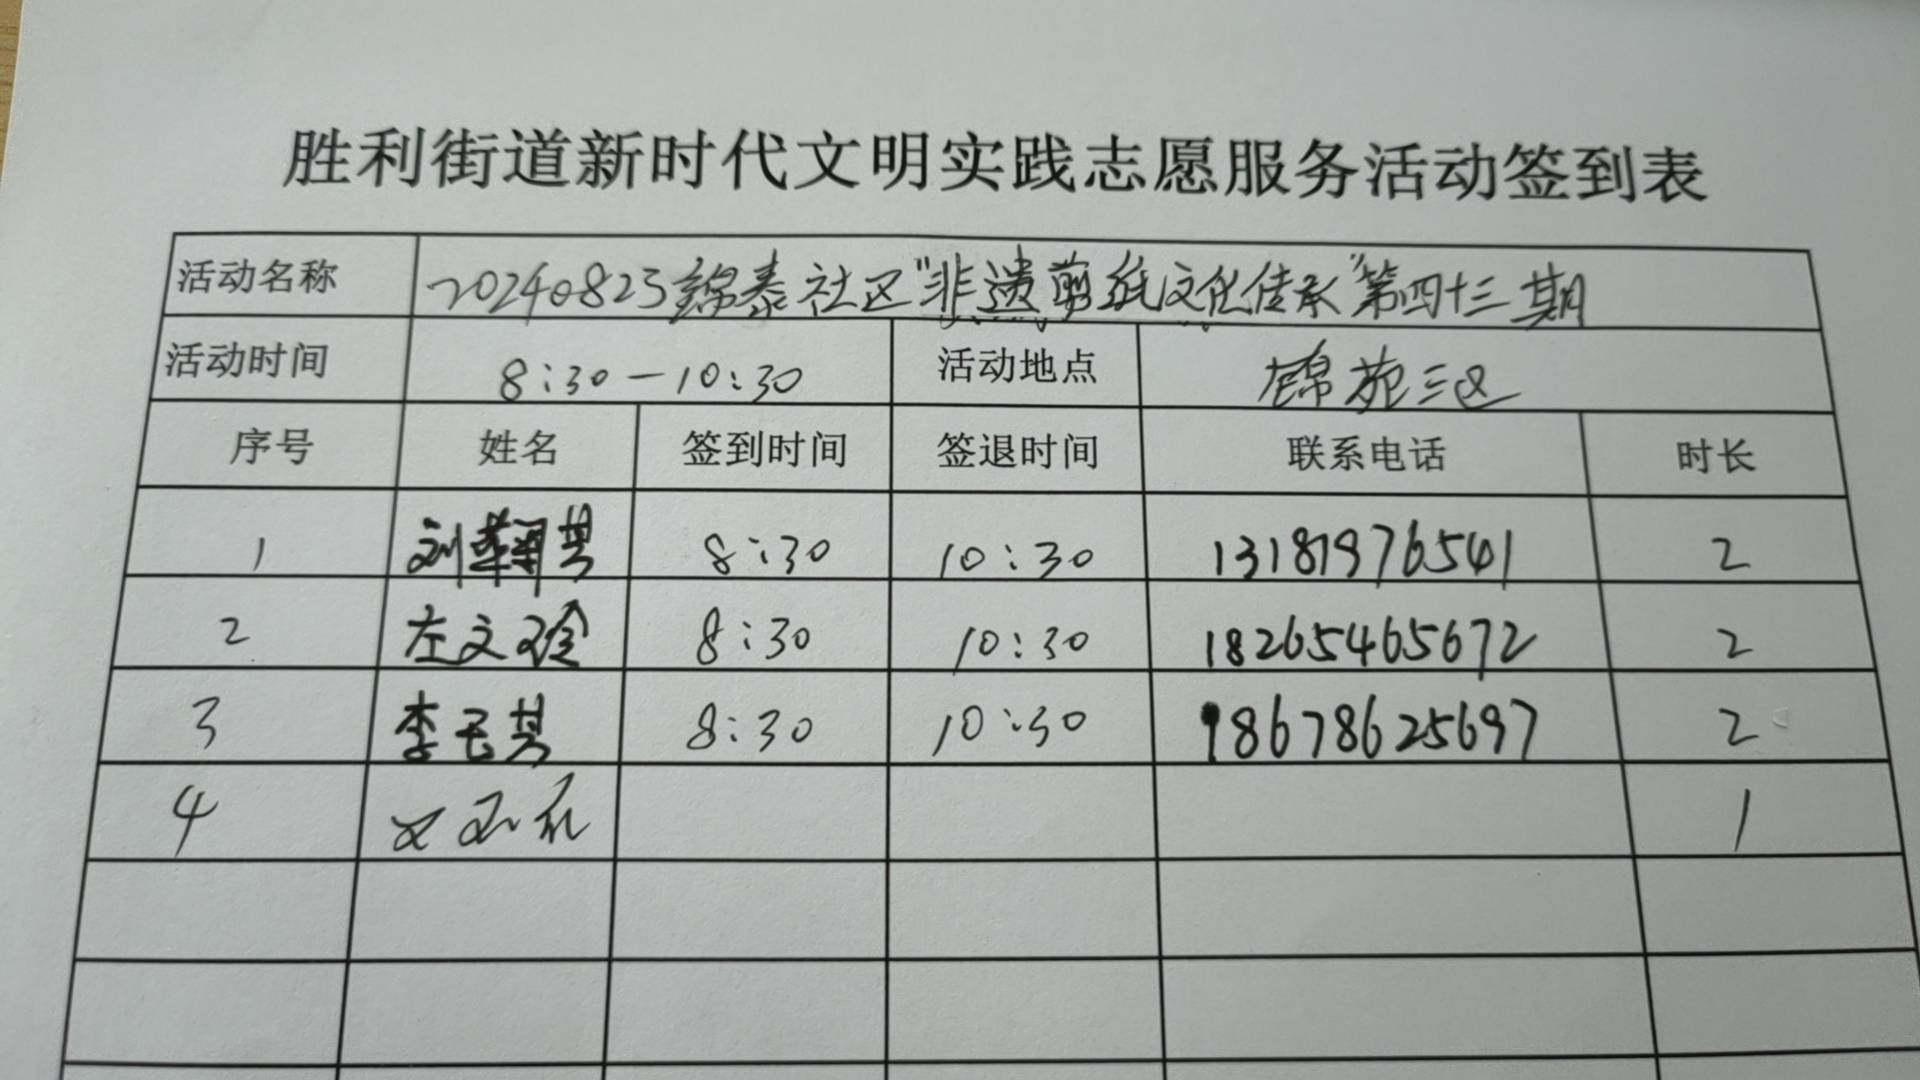 胜利街道新时代文明实践志愿服务活动签到表
活动名称 20240823锦泰社区"非遗剪纸文化传承"第四十三期
活动时间 8:30-10:30 活动地点 锦苑三区
序号 姓名 签到时间 签退时间 联系电话 时长
1 刘翠芸 8:30 10:30 13181976541 2
2 左文玲 8:30 10:30 18265465672 2
3 李玉芸 8:30 10:30 18678625697 2
4 1